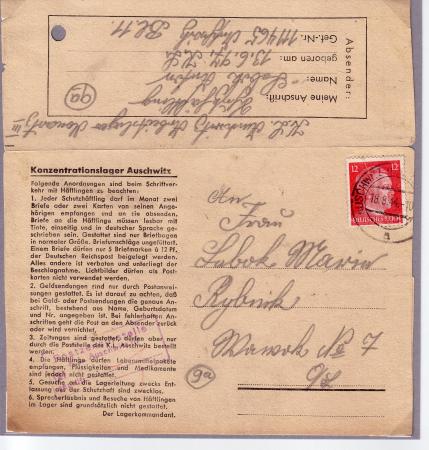 Absender:
Meine Anschrift:
Name:
geboren am: 13. 6. 97.
Gef.-Nr. 111465 Bl. 11.
Konzentrationslager Auschwitz
Folgende Anordnungen sind beim Schriftver-
kehr mit Häftlingen zu beachten:
1. Jeder Schutzhäftling darf im Monat zwei
Briefe oder zwei Karten von seinen Ange-
hörigen empfangen und an sie absenden.
Briefe an die Häftlinge müssen lesbar mit
Tinte, einseitig und in deutscher Sprache ge-
schrieben sein. Gestattet sind nur Briefbogen
in normaler Größe. Briefumschläge ungefüttert.
Einem Briefe dürfen nur 5 Briefmarken à 12 Pf.
der Deutschen Reichspost beigelegt werden.
Alles andere ist verboten und unterliegt der
Beschlagnahme. Lichtbilder dürfen als Post-
karten nicht verwendet werden.
2. Geldsendungen sind nur durch Postanwei-
sungen gestattet. Es ist darauf zu achten, daß
bei Geld- oder Postsendungen die genaue An-
schrift, bestehend aus Name, Geburtsdatum
und Nr. angegeben ist. Bei fehlerhaften An-
schriften geht die Post an den Absender zurück
oder wird vernichtet.
3. Zeitungen sind gestattet, dürfen aber nur
durch die Poststelle des K. L. Auschwitz bestellt
werden.
4. Die Häftlinge dürfen Lebensmittelpakete
empfangen, Flüssigkeiten und Medikamente
sind jedoch nicht gestattet.
5. Gesuche an die Lagerleitung zwecks Entlas-
sung aus der Schutzhaft sind zwecklos.
6. Sprecherlaubnis und Besuche von Häftlingen
im Lager sind grundsätzlich nicht gestattet.
Der Lagerkommandant.
12 12
DEUTSCHES REICH
a
An
Frau
Lubok Maria
Rybnik
7
9a